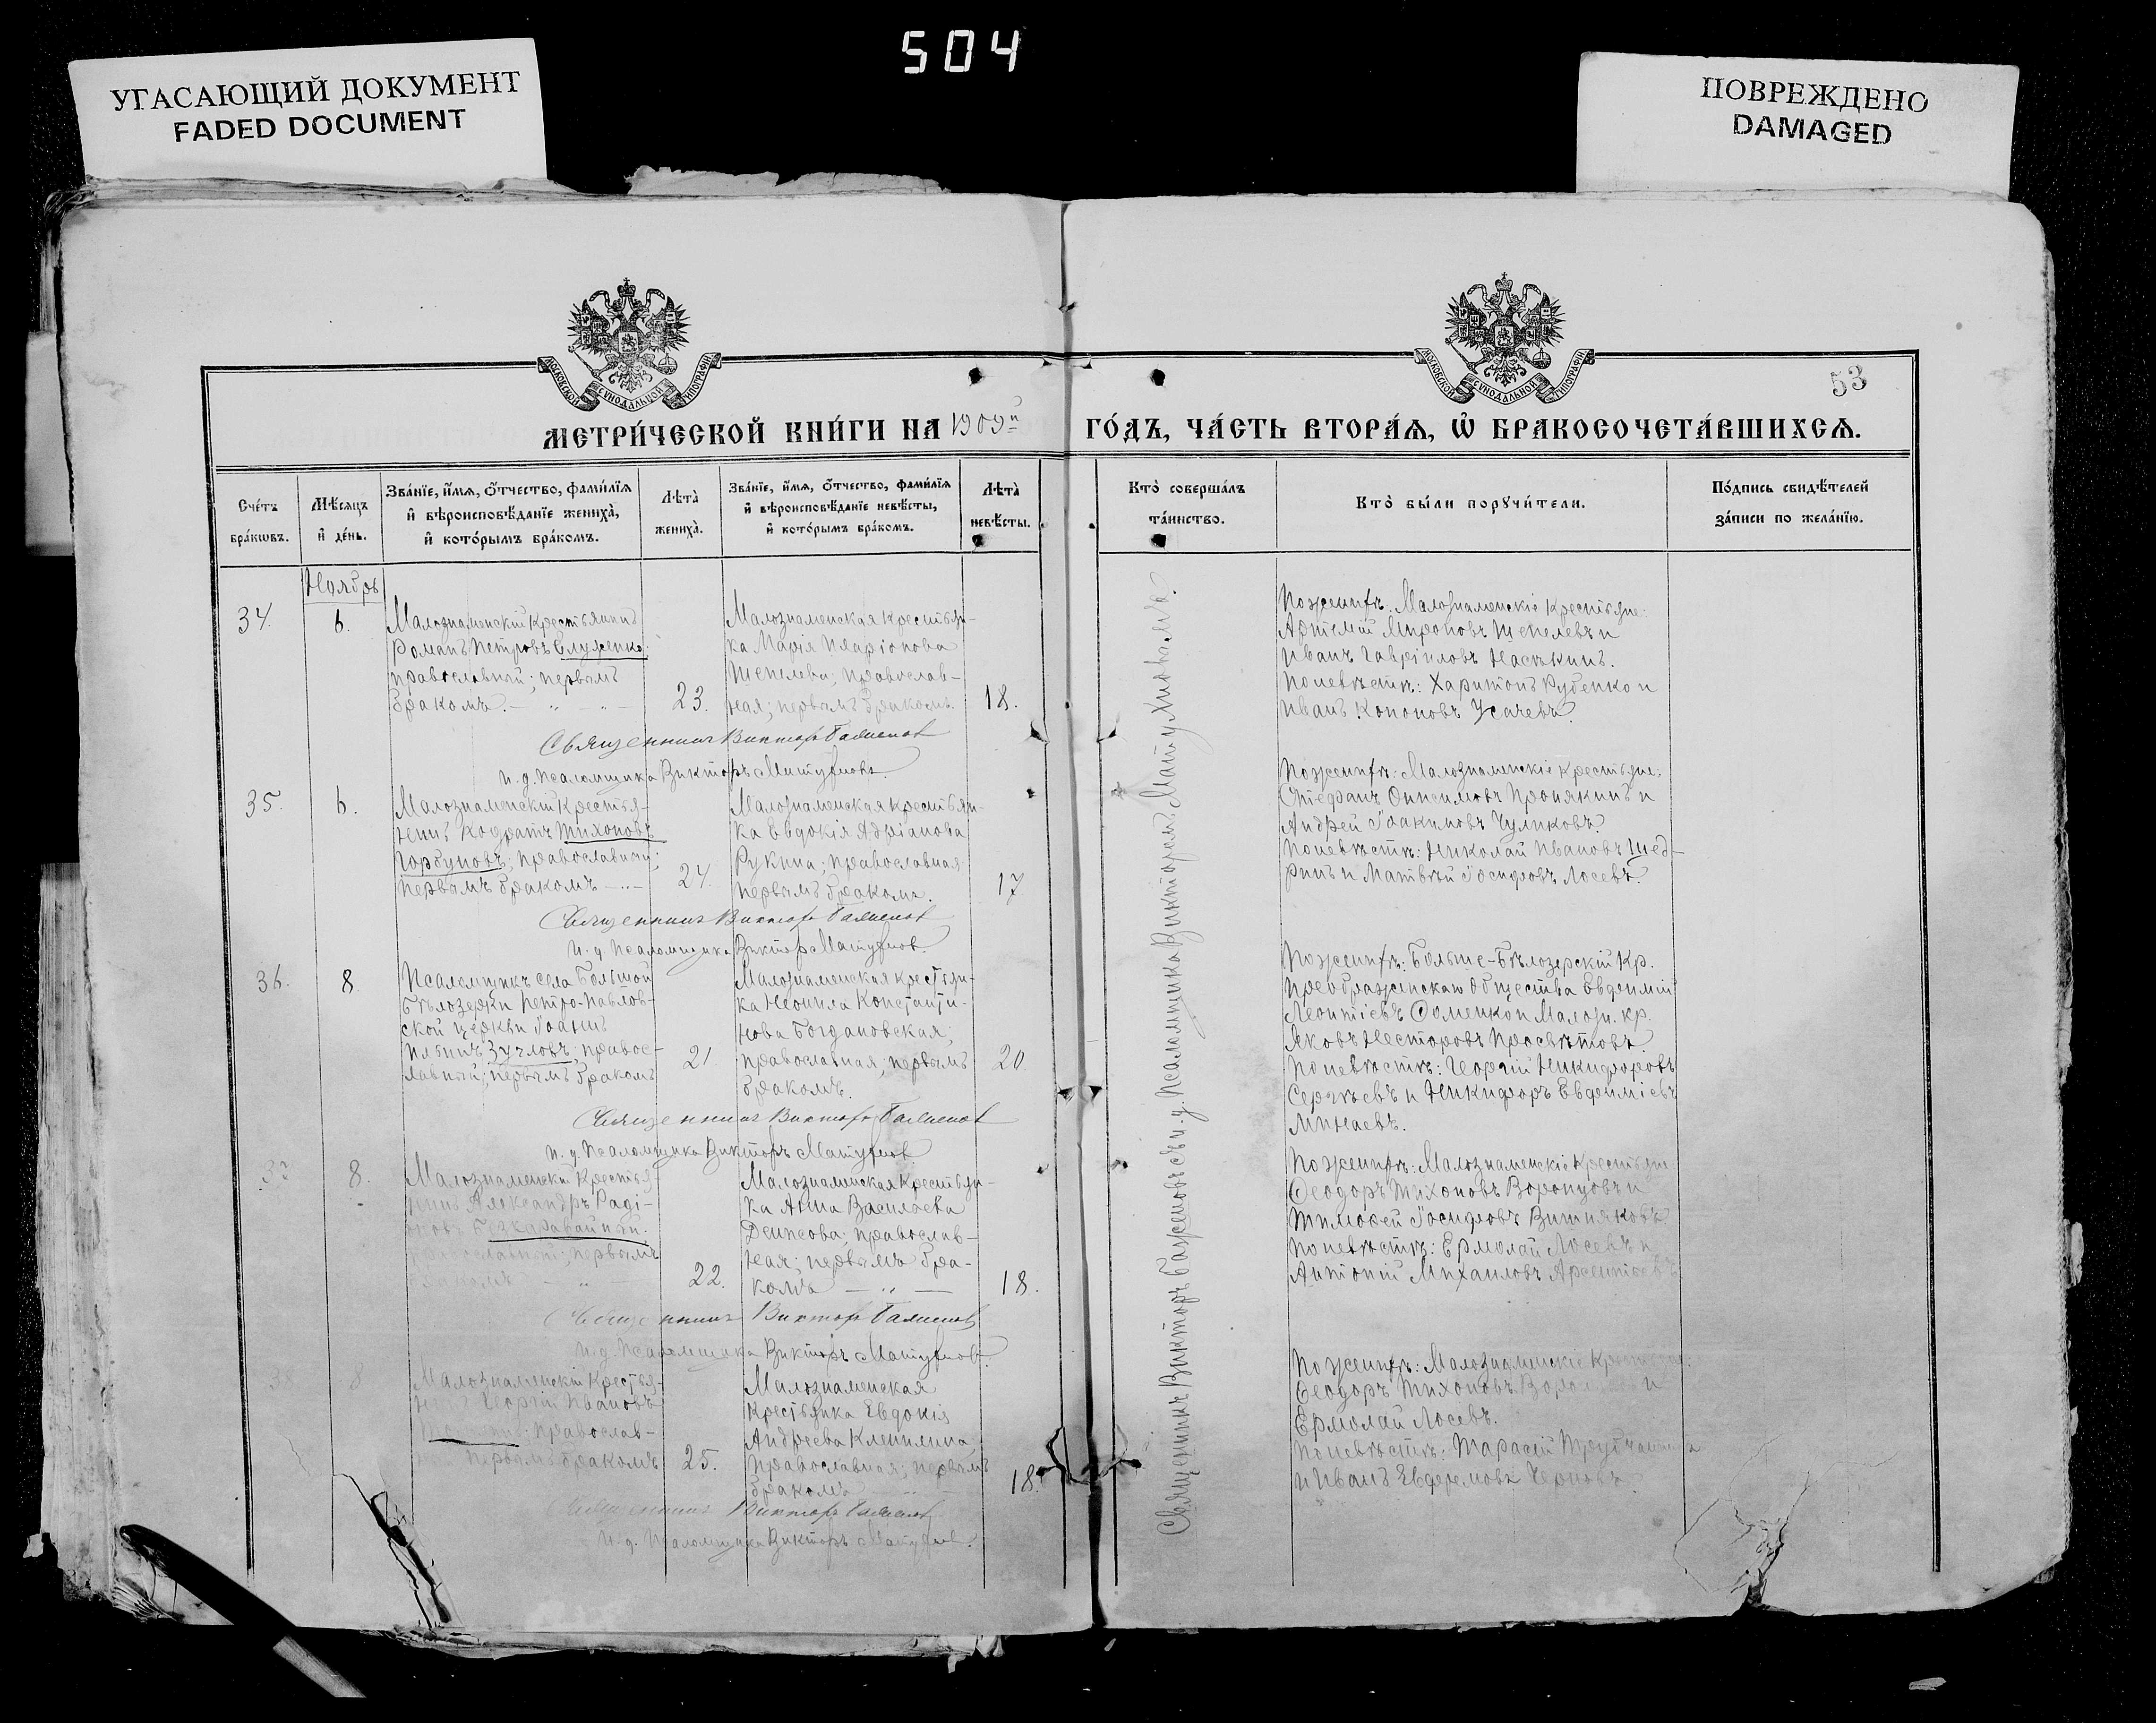 504
УГАСАЮЩИЙ ДОКУМЕНТ
FADED DOCUMENT
ПОВРЕЖДЕНО
DAMAGED
МОСКОВСКОЙ СѴНОДАЛЬНОЙ ТИПОГРАФІИ
МОСКОВСКОЙ СѴНОДАЛЬНОЙ ТИПОГРАФІИ
53
МЕТРИ́ЧЕСКОЙ КНИ́ГИ НА 1909й ГО́ДЪ, ЧА́СТЬ ВТОРА́Ѧ, Ѽ БРАКОСОЧЕТА́ВШИХСѦ.
Сче́тъ
бра́кѡвъ.
Мѣ́сяцъ
и҆ де́нь.
Зва́нїе, и҆́мя, ѻ҆́тчество, фами́лїя
и҆ вѣроисповѣ́данїе жениха̀,
и҆ кото́рымъ бра́комъ.
Лѣта̀
жениха̀.
Зва́нїе, и҆́мя, ѻ҆́тчество, фами́лїя
и҆ вѣроисповѣ́данїе невѣ́сты,
и҆ кото́рымъ бра́комъ.
Лѣта̀
невѣ́сты.
Кто̀ соверша́лъ
та́инство.
Кто̀ бы́ли порꙋчи́тели.
По́дпись свидѣ́телей
за́писи по жела́нїю.
Ноябрь
34.
6.
Малознаменскій Крестьянинъ
Романъ Петровъ Служенко;
православный; первымъ
бракомъ. — " — " —
23.
Малознаменская Крестьян-
ка Марія Иларіонова
Шепелева; православ-
ная; первымъ бракомъ.
18.
Священникъ Викторъ Баженов
и. д. Псаломщика Викторъ Матухновъ.
По женихѣ: Малознаменскіе Крестьяне:
Артемій Мироновъ Шепелевъ и
Иванъ Гавріиловъ Насѣкинъ.
По невѣстѣ: Харитонъ Рубенко и
Иванъ Кононовъ Усачевъ.
35.
6.
Малознаменскій Крестья-
нинъ Кодратъ Тихоновъ
Горбуновъ; православный;
первымъ бракомъ — " —
24.
Малознаменская Крестьян-
ка Евдокія Адріанова
Рукина; православная
первымъ бракомъ.
17
Священникъ Викторъ Баженов
и. д. Псаломщика Викторъ Матухнов.
По женихѣ: Малознаменскіе Крестьяне:
Стефанъ Онисимовъ Пронякинъ и
Андрей Іоакимовъ Чуликовъ.
По невѣстѣ: Николай Ивановъ Щед-
ринъ и Матвѣй Іосифовъ Лосевъ.
36.
8
Псаломщикъ села Большой
Бѣлозерки Петро-Павлов-
ской церкви Іоаннъ
Ильинъ Зучловъ; правос-
лавный; первымъ бракомъ
21.
Малознаменская Крестьян-
ка Неонила Константи-
нова Богдановская;
православная; первымъ
бракомъ.
20.
Священникъ Викторъ Баженов
и. д. Псаломщика Викторъ Матухнов
По женихѣ: Больше-Бѣлозерскій Кр.
Преображенскаго Общества Евфимій
Леонтіевъ Фоменко и Малозн. кр.
Яковъ Несторовъ Просвѣтовъ.
По невѣстѣ: Георгій Никифоровъ
Сергѣевъ и Никифоръ Евфиміевъ
Минаевъ.
37
8.
Малознаменскій Крестья-
нинъ Александръ Раді-
оновъ Безкаравайный;
православный; первымъ
бракомъ — "
22.
Малознаменская Крестьян-
ка Анна Васильева
Денисова; православ-
ная; первымъ бра-
комъ — " —
18.
Священникъ Викторъ Баженов
и. д. Псаломщика Викторъ Матухнов.
По женихѣ: Малознаменскіе Крестьяне
Ѳеодоръ Тихоновъ Воронцовъ и
Тимоѳей Іосифовъ Вишняковъ.
По невѣстѣ: Ермолай Лосевъ и
Антоній Михаиловъ Арсентіевъ
38
8
Малознаменскій Крестья-
нинъ Георгій Ивановъ
православ-
первымъ бракомъ
25.
Малознаменская
Крестьянка Евдокія
Андреева Кленилина,
православная; первымъ
бракомъ
18.
Священникъ Викторъ Баженов
И. д. Псаломщика Викторъ Матухнов.
По женихѣ: Малознаменскіе Крестьяне
Ѳеодоръ Тихоновъ и
Ермолай Лосевъ.
По невѣстѣ: Тарасій
и Иванъ Евфремовъ Черновъ.
Священникъ Викторъ Баженовъ съ и. д. Псаломщика Викторомъ Матухновымъ.